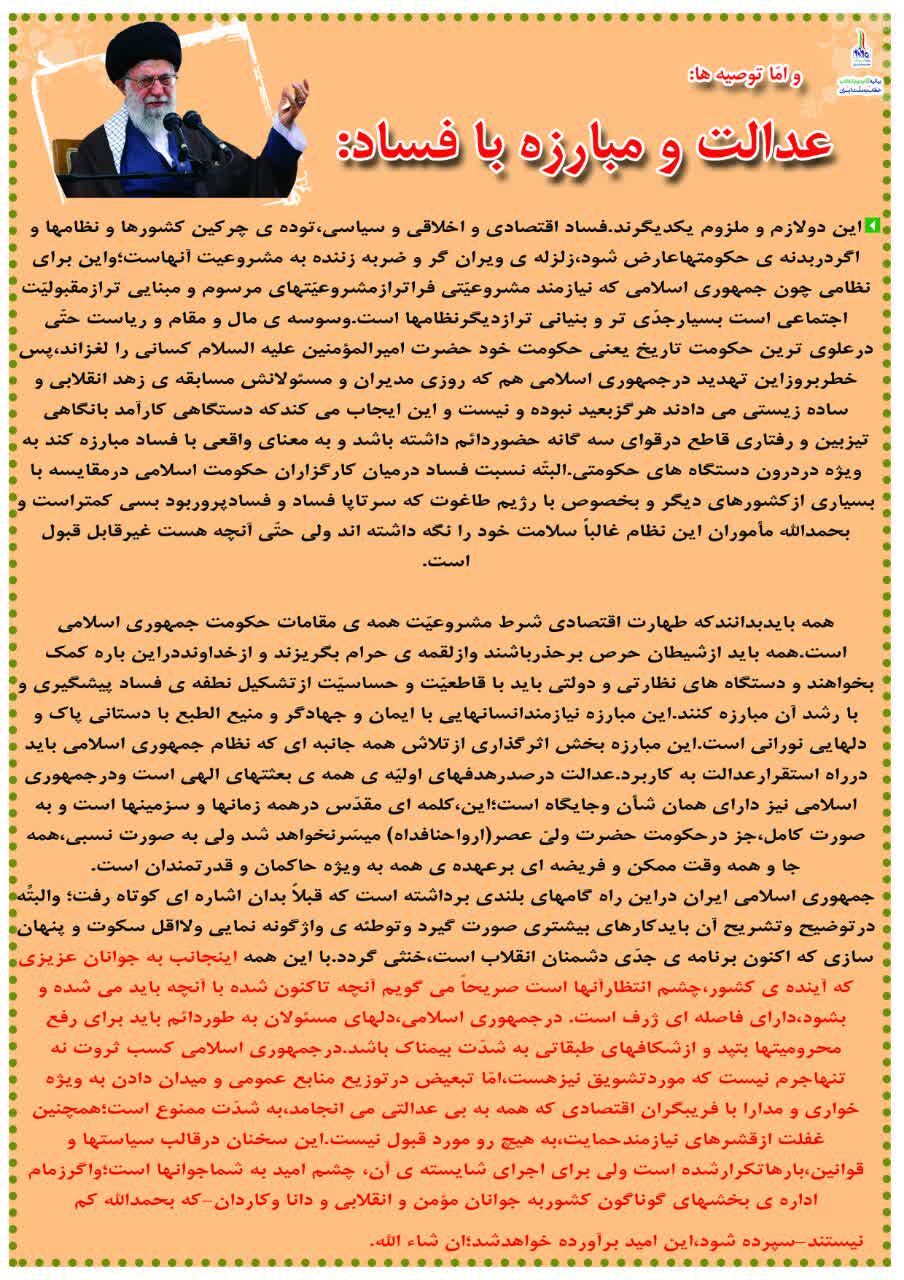 و امّا توصیه ها:
عدالت و مبارزه با فساد:
این دولازم و ملزوم یکدیگرند.فساد اقتصادی و اخلاقی و سیاسی،توده ی چرکین کشورها و نظامها و
اگردربدنه ی حکومتهاعارض شود،زلزله ی ویران گر و ضربه زننده به مشروعیت آنهاست؛واین برای
نظامی چون جمهوری اسلامی که نیازمند مشروعیّتی فراترازمشروعیّتهای مرسوم و مبنایی ترازمقبولیّت
اجتماعی است بسیارجدّی تر و بنیانی ترازدیگرنظامها است.وسوسه ی مال و مقام و ریاست حتّی
درعلوی ترین حکومت تاریخ یعنی حکومت خود حضرت امیرالمؤمنین علیه السلام کسانی را لغزاند،پس
خطربروزاین تهدید درجمهوری اسلامی هم که روزی مدیران و مسئولانش مسابقه ی زهد انقلابی و
ساده زیستی می دادند هرگزبعید نبوده و نیست و این ایجاب می کندکه دستگاهی کارآمد بانگاهی
تیزبین و رفتاری قاطع درقوای سه گانه حضوردائم داشته باشد و به معنای واقعی با فساد مبارزه کند به
ویژه دردرون دستگاه های حکومتی.البتّه نسبت فساد درمیان کارگزاران حکومت اسلامی درمقایسه با
بسیاری ازکشورهای دیگر و بخصوص با رژیم طاغوت که سرتاپا فساد و فسادپروربود بسی کمتراست و
بحمدالله مأموران این نظام غالباً سلامت خود را نگه داشته اند ولی حتّی آنچه هست غیرقابل قبول
است.
همه بایدبدانندکه طهارت اقتصادی شرط مشروعیّت همه ی مقامات حکومت جمهوری اسلامی
است.همه باید ازشیطان حرص برحذرباشند وازلقمه ی حرام بگریزند و ازخداونددراین باره کمک
بخواهند و دستگاه های نظارتی و دولتی باید با قاطعیّت و حساسیّت ازتشکیل نطفه ی فساد پیشگیری و
با رشد آن مبارزه کنند.این مبارزه نیازمندانسانهایی با ایمان و جهادگر و منیع الطبع با دستانی پاک و
دلهایی نورانی است.این مبارزه بخش اثرگذاری ازتلاش همه جانبه ای که نظام جمهوری اسلامی باید
درراه استقرارعدالت به کاربرد.عدالت درصدرهدفهای اولیّه ی همه ی بعثتهای الهی است ودرجمهوری
اسلامی نیز دارای همان شأن وجایگاه است؛این،کلمه ای مقدّس درهمه زمانها و سزمینها است و به
صورت کامل،جز درحکومت حضرت ولیّ عصر(ارواحنافداه) میسّرنخواهد شد ولی به صورت نسبی،همه
جا و همه وقت ممکن و فریضه ای برعهده ی همه به ویژه حاکمان و قدرتمندان است.
جمهوری اسلامی ایران دراین راه گامهای بلندی برداشته است که قبلاً بدان اشاره ای کوتاه رفت؛ والبتُه
درتوضیح وتشریح آن بایدکارهای بیشتری صورت گیرد وتوطئه ی واژگونه نمایی ولااقل سکوت و پنهان
سازی که اکنون برنامه ی جدّی دشمنان انقلاب است،خنثی گردد.با این همه اینجانب به جوانان عزیزی
که آینده ی کشور،چشم انتظارآنها است صریحاً می گویم آنچه تاکنون شده با آنچه باید می شده و
بشود،دارای فاصله ای ژرف است. درجمهوری اسلامی،دلهای مسئولان به طوردائم باید برای رفع
محرومیتها بتپد و ازشکافهای طبقاتی به شدّت بیمناک باشد.درجمهوری اسلامی کسب ثروت نه
تنهاجرم نیست که موردتشویق نیزهست،امّا تبعیض درتوزیع منابع عمومی و میدان دادن به ویژه
خواری و مدارا با فریبگران اقتصادی که همه به بی عدالتی می انجامد،به شدّت ممنوع است؛همچنین
غفلت ازقشرهای نیازمندحمایت،به هیچ رو مورد قبول نیست.این سخنان درقالب سیاستها و
قوانین،بارهاتکرارشده است ولی برای اجرای شایسته ی آن، چشم امید به شماجوانها است؛واگرزمام
اداره ی بخشهای گوناگون کشوربه جوانان مؤمن و انقلابی و دانا وکاردان-که بحمدالله کم
نیستند-سپرده شود،این امید برآورده خواهدشد؛ان شاء الله.